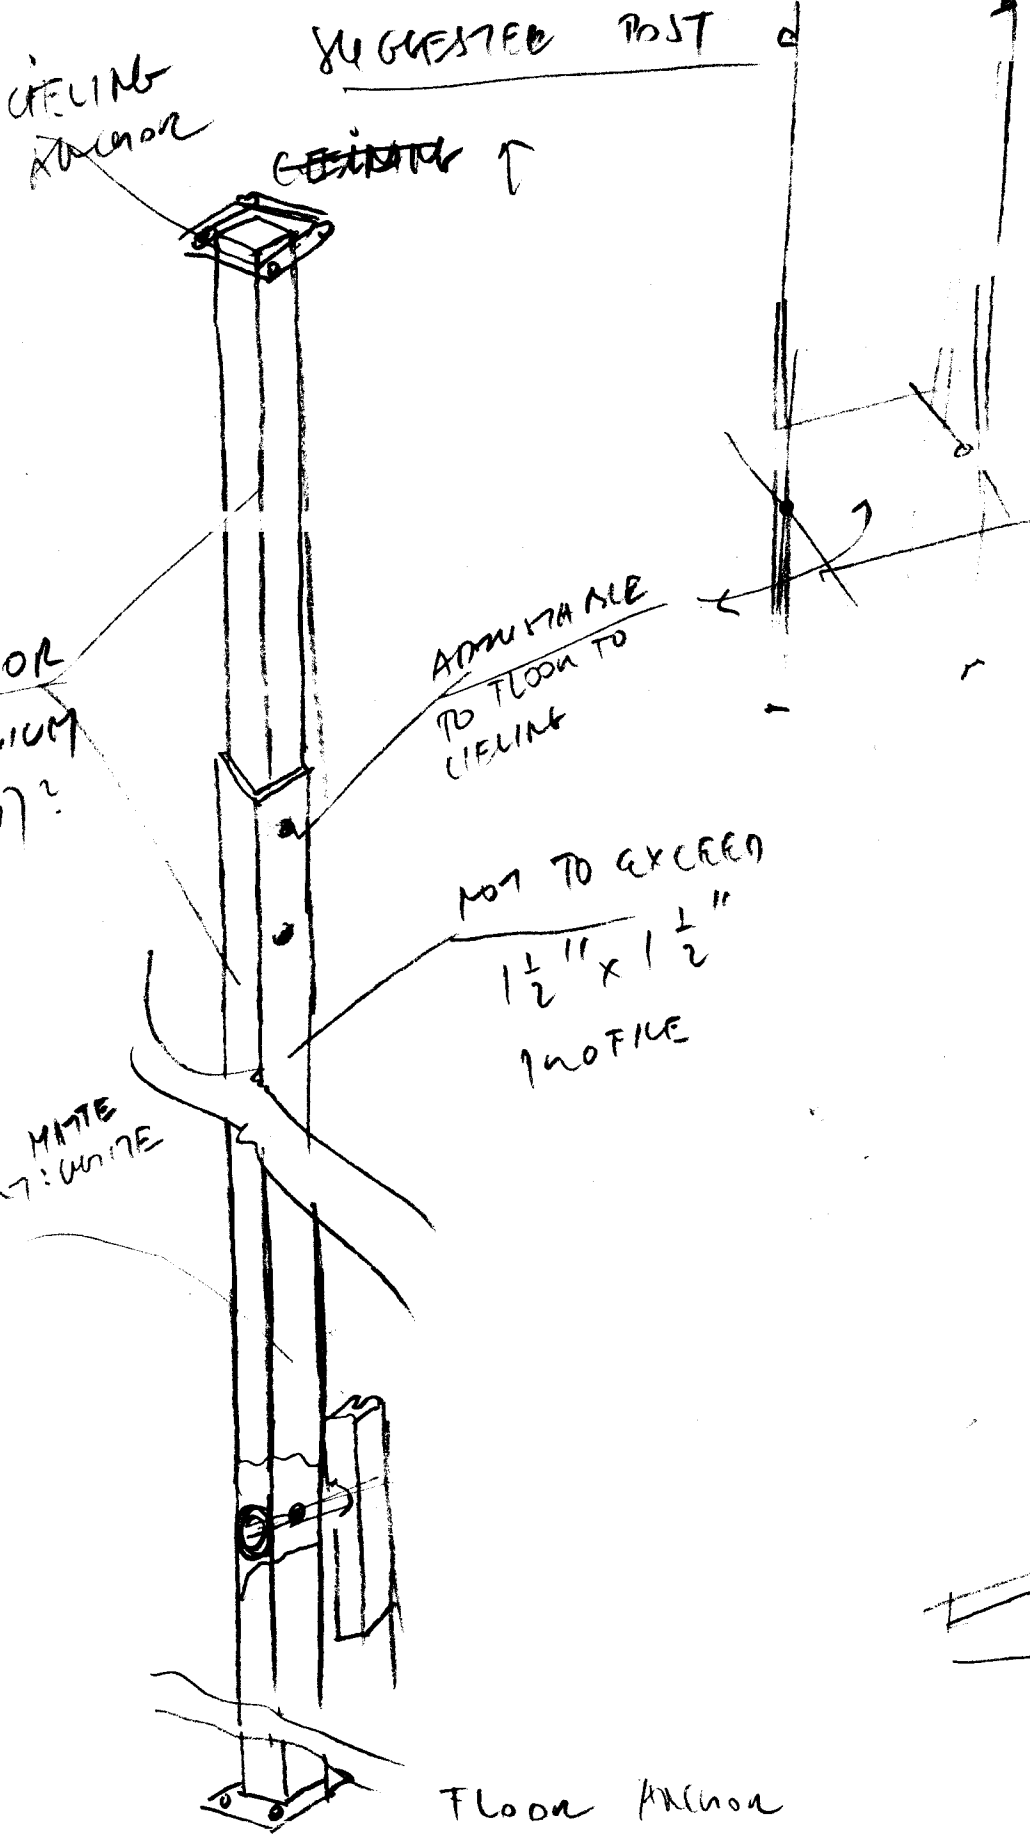 SUGGESTED POST
CIELING
ANCHOR
CEILING
ADJUSTABLE
TO FLOOR TO
CIELING
OR
IUM
?
NOT TO EXCEED
1 1/2" x 1 1/2"
PROFILE
MATTE
: WHITE
FLOOR ANCHOR